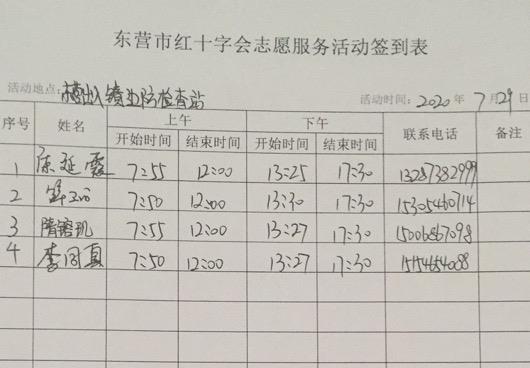 东营市红十字会志愿服务活动签到表
活动地点: 镇边防检查站 活动时间: 2020 年 7 月 29 日
序号 姓名 上午 下午 联系电话 备注
开始时间 结束时间 开始时间 结束时间
1 陈延霞 7:55 12:00 13:25 17:30 13287382999
2 7:50 12:00 13:30 17:30 15305460714
3 隋 玑 7:55 12:00 13:27 17:30 15006867098
4 李同真 7:50 12:00 13:27 17:30 15154654088